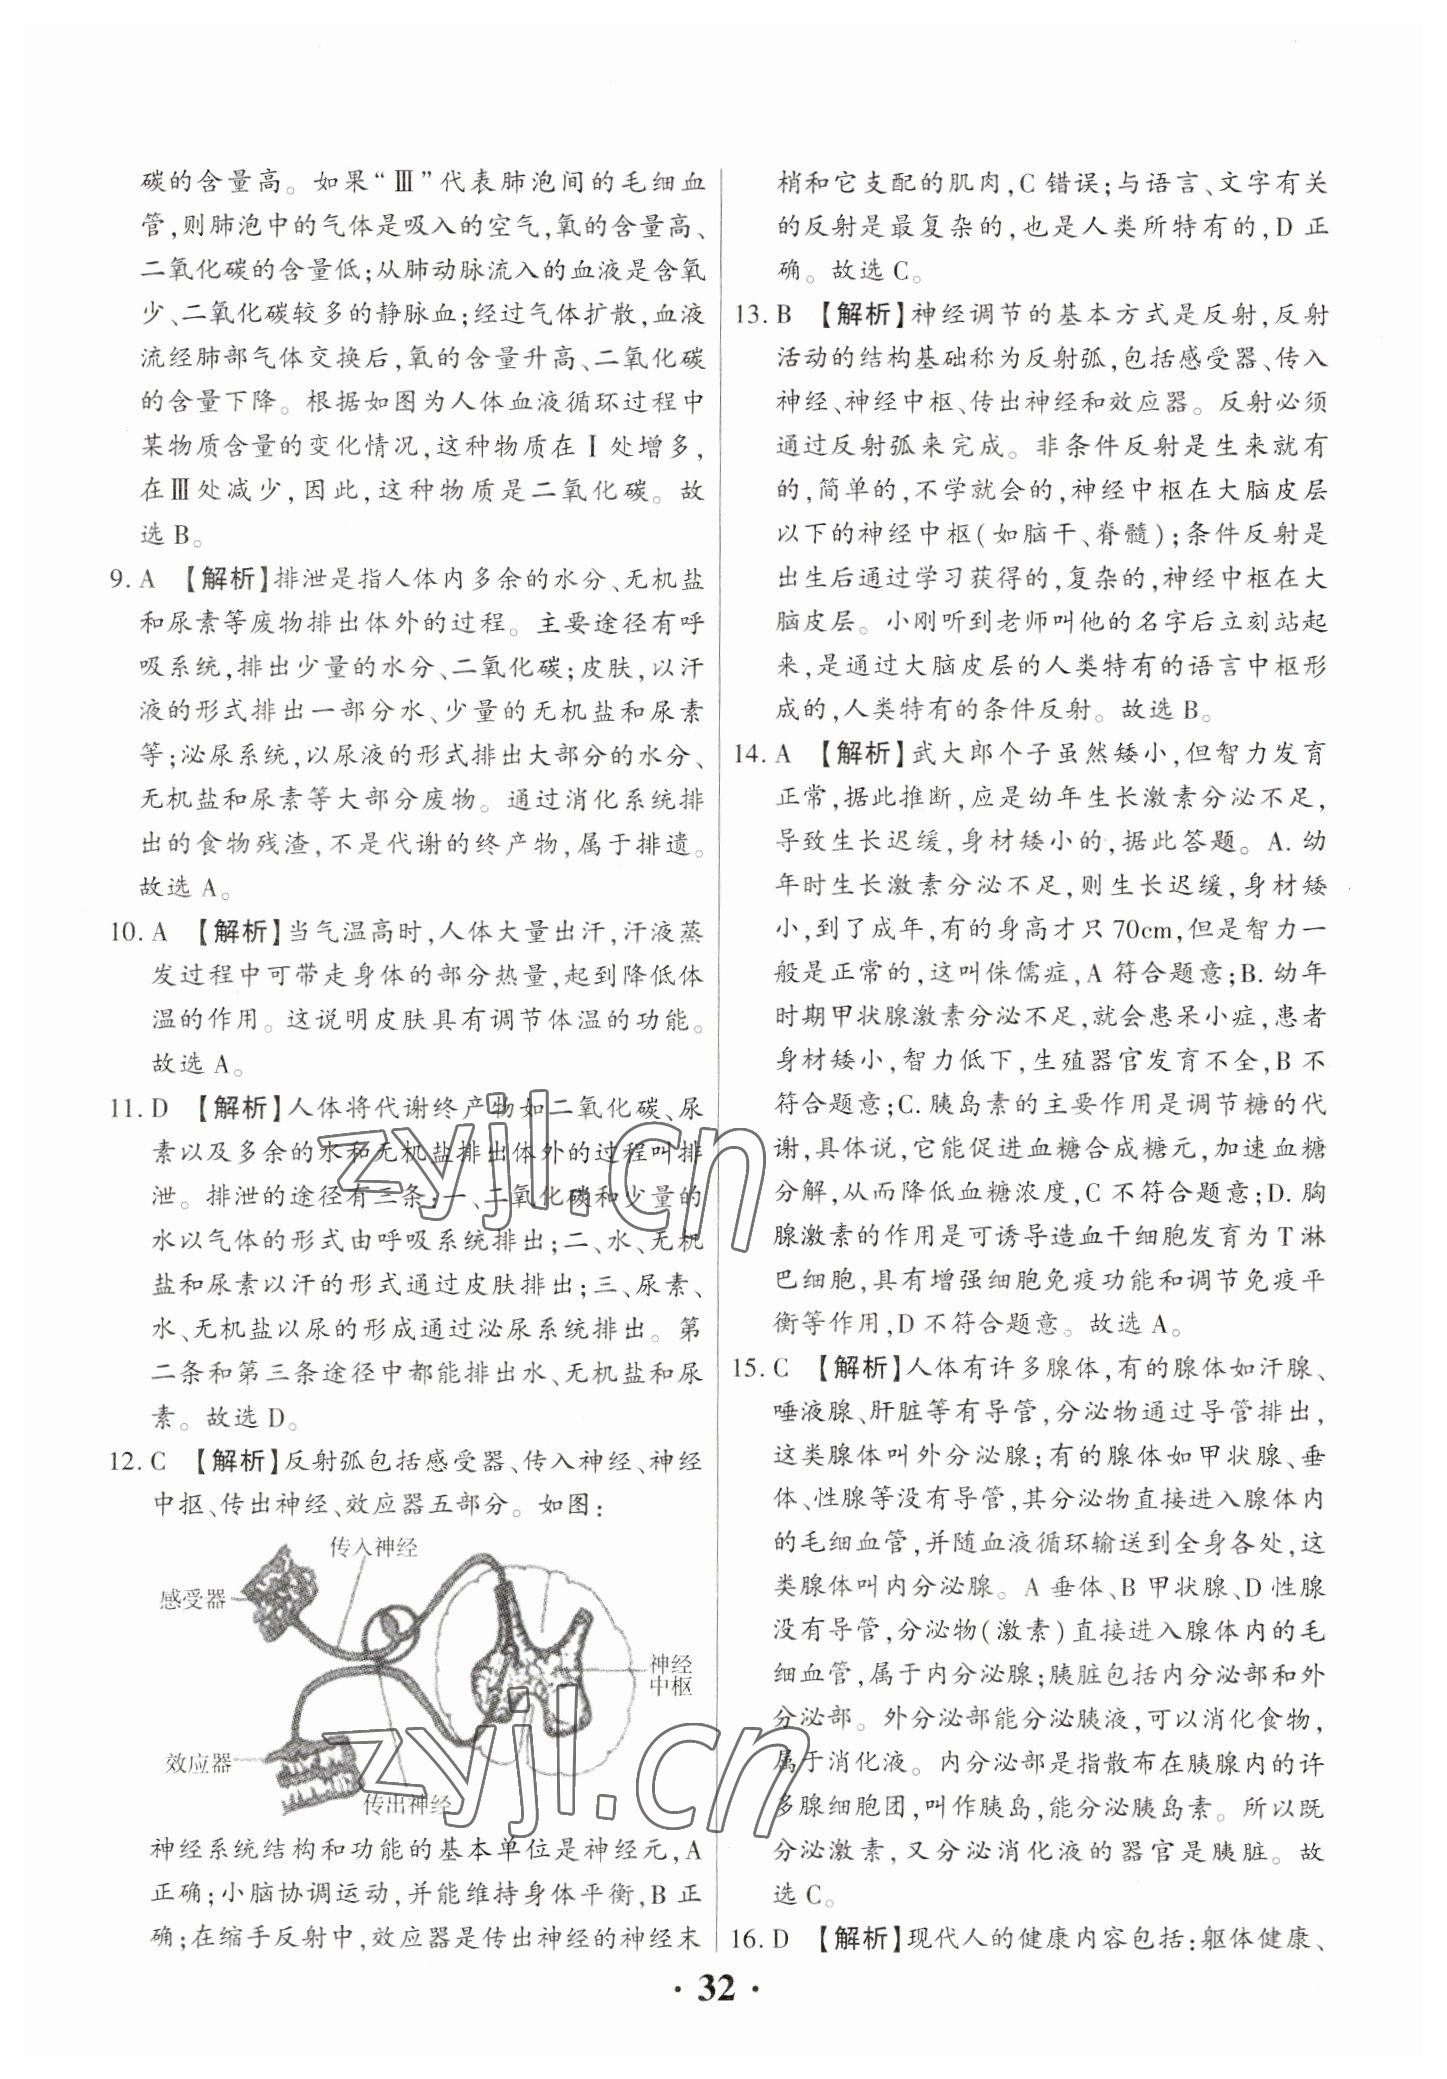 碳的含量高。如果“Ⅲ”代表肺泡间的毛细血
管,则肺泡中的气体是吸入的空气,氧的含量高、
二氧化碳的含量低;从肺动脉流入的血液是含氧
少、二氧化碳较多的静脉血;经过气体扩散,血液
流经肺部气体交换后,氧的含量升高、二氧化碳
的含量下降。根据如图为人体血液循环过程中
某物质含量的变化情况,这种物质在Ⅰ处增多,
在Ⅲ处减少,因此,这种物质是二氧化碳。故
选 B。
9. A 【解析】排泄是指人体内多余的水分、无机盐
和尿素等废物排出体外的过程。主要途径有呼
吸系统,排出少量的水分、二氧化碳;皮肤,以汗
液的形式排出一部分水、少量的无机盐和尿素
等;泌尿系统,以尿液的形式排出大部分的水分、
无机盐和尿素等大部分废物。通过消化系统排
出的食物残渣,不是代谢的终产物,属于排遗。
故选 A。
10. A 【解析】当气温高时,人体大量出汗,汗液蒸
发过程中可带走身体的部分热量,起到降低体
温的作用。这说明皮肤具有调节体温的功能。
故选 A。
11. D 【解析】人体将代谢终产物如二氧化碳、尿
素以及多余的水和无机盐排出体外的过程叫排
泄。排泄的途径有三条:一、二氧化碳和少量的
水以气体的形式由呼吸系统排出;二、水、无机
盐和尿素以汗的形式通过皮肤排出;三、尿素、
水、无机盐以尿的形成通过泌尿系统排出。第
二条和第三条途径中都能排出水、无机盐和尿
素。故选 D。
12. C 【解析】反射弧包括感受器、传入神经、神经
中枢、传出神经、效应器五部分。如图:
传入神经
感受器
神经
中枢
效应器
传出神经
神经系统结构和功能的基本单位是神经元,A
正确;小脑协调运动,并能维持身体平衡,B 正
确;在缩手反射中,效应器是传出神经的神经末
梢和它支配的肌肉,C 错误;与语言、文字有关
的反射是最复杂的,也是人类所特有的,D 正
确。故选 C。
13. B 【解析】神经调节的基本方式是反射,反射
活动的结构基础称为反射弧,包括感受器、传入
神经、神经中枢、传出神经和效应器。反射必须
通过反射弧来完成。非条件反射是生来就有
的,简单的,不学就会的,神经中枢在大脑皮层
以下的神经中枢(如脑干、脊髓);条件反射是
出生后通过学习获得的,复杂的,神经中枢在大
脑皮层。小刚听到老师叫他的名字后立刻站起
来,是通过大脑皮层的人类特有的语言中枢形
成的,人类特有的条件反射。故选 B。
14. A 【解析】武大郎个子虽然矮小,但智力发育
正常,据此推断,应是幼年生长激素分泌不足,
导致生长迟缓,身材矮小的,据此答题。A. 幼
年时生长激素分泌不足,则生长迟缓,身材矮
小,到了成年,有的身高才只 70cm,但是智力一
般是正常的,这叫侏儒症,A 符合题意;B. 幼年
时期甲状腺激素分泌不足,就会患呆小症,患者
身材矮小,智力低下,生殖器官发育不全,B 不
符合题意;C. 胰岛素的主要作用是调节糖的代
谢,具体说,它能促进血糖合成糖元,加速血糖
分解,从而降低血糖浓度,C 不符合题意;D. 胸
腺激素的作用是可诱导造血干细胞发育为 T 淋
巴细胞,具有增强细胞免疫功能和调节免疫平
衡等作用,D 不符合题意。故选 A。
15. C 【解析】人体有许多腺体,有的腺体如汗腺、
唾液腺、肝脏等有导管,分泌物通过导管排出,
这类腺体叫外分泌腺;有的腺体如甲状腺、垂
体、性腺等没有导管,其分泌物直接进入腺体内
的毛细血管,并随血液循环输送到全身各处,这
类腺体叫内分泌腺。A 垂体、B 甲状腺、D 性腺
没有导管,分泌物(激素)直接进入腺体内的毛
细血管,属于内分泌腺;胰脏包括内分泌部和外
分泌部。外分泌部能分泌胰液,可以消化食物,
属于消化液。内分泌部是指散布在胰腺内的许
多腺细胞团,叫作胰岛,能分泌胰岛素。所以既
分泌激素,又分泌消化液的器官是胰脏。故
选 C。
16. D 【解析】现代人的健康内容包括:躯体健康、
· 32 ·
zyjl.cn
zyjl.cn